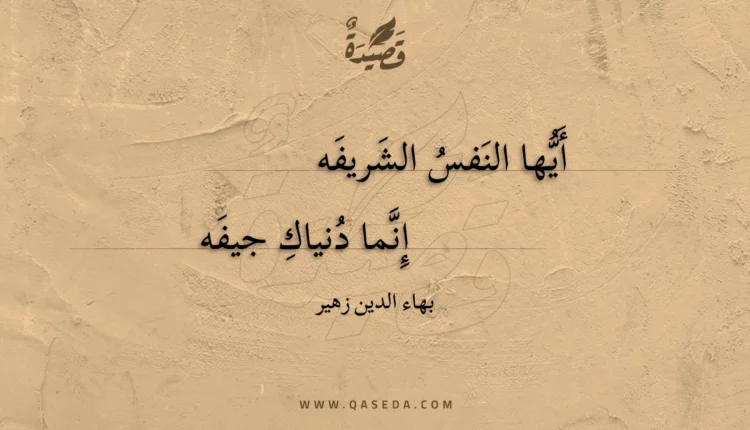 قَصِيدَةٌ
أَيُّها النَفسُ الشَريفَه
إِنَّما دُنياكِ جيفَه
بهاء الدين زهير
WWW.QASEDA.COM